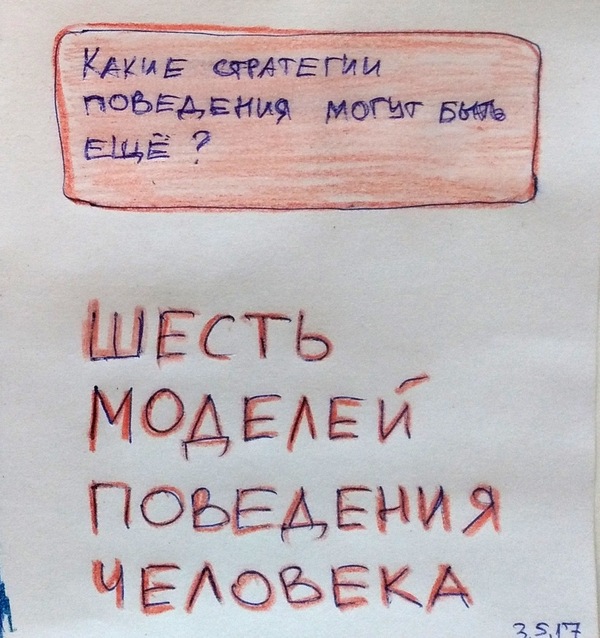 КАКИЕ СТРАТЕГИИ
ПОВЕДЕНИЯ МОГУТ БЫТЬ
ЕЩЁ ?
ШЕСТЬ
МОДЕЛЕЙ
ПОВЕДЕНИЯ
ЧЕЛОВЕКА
3.5.17